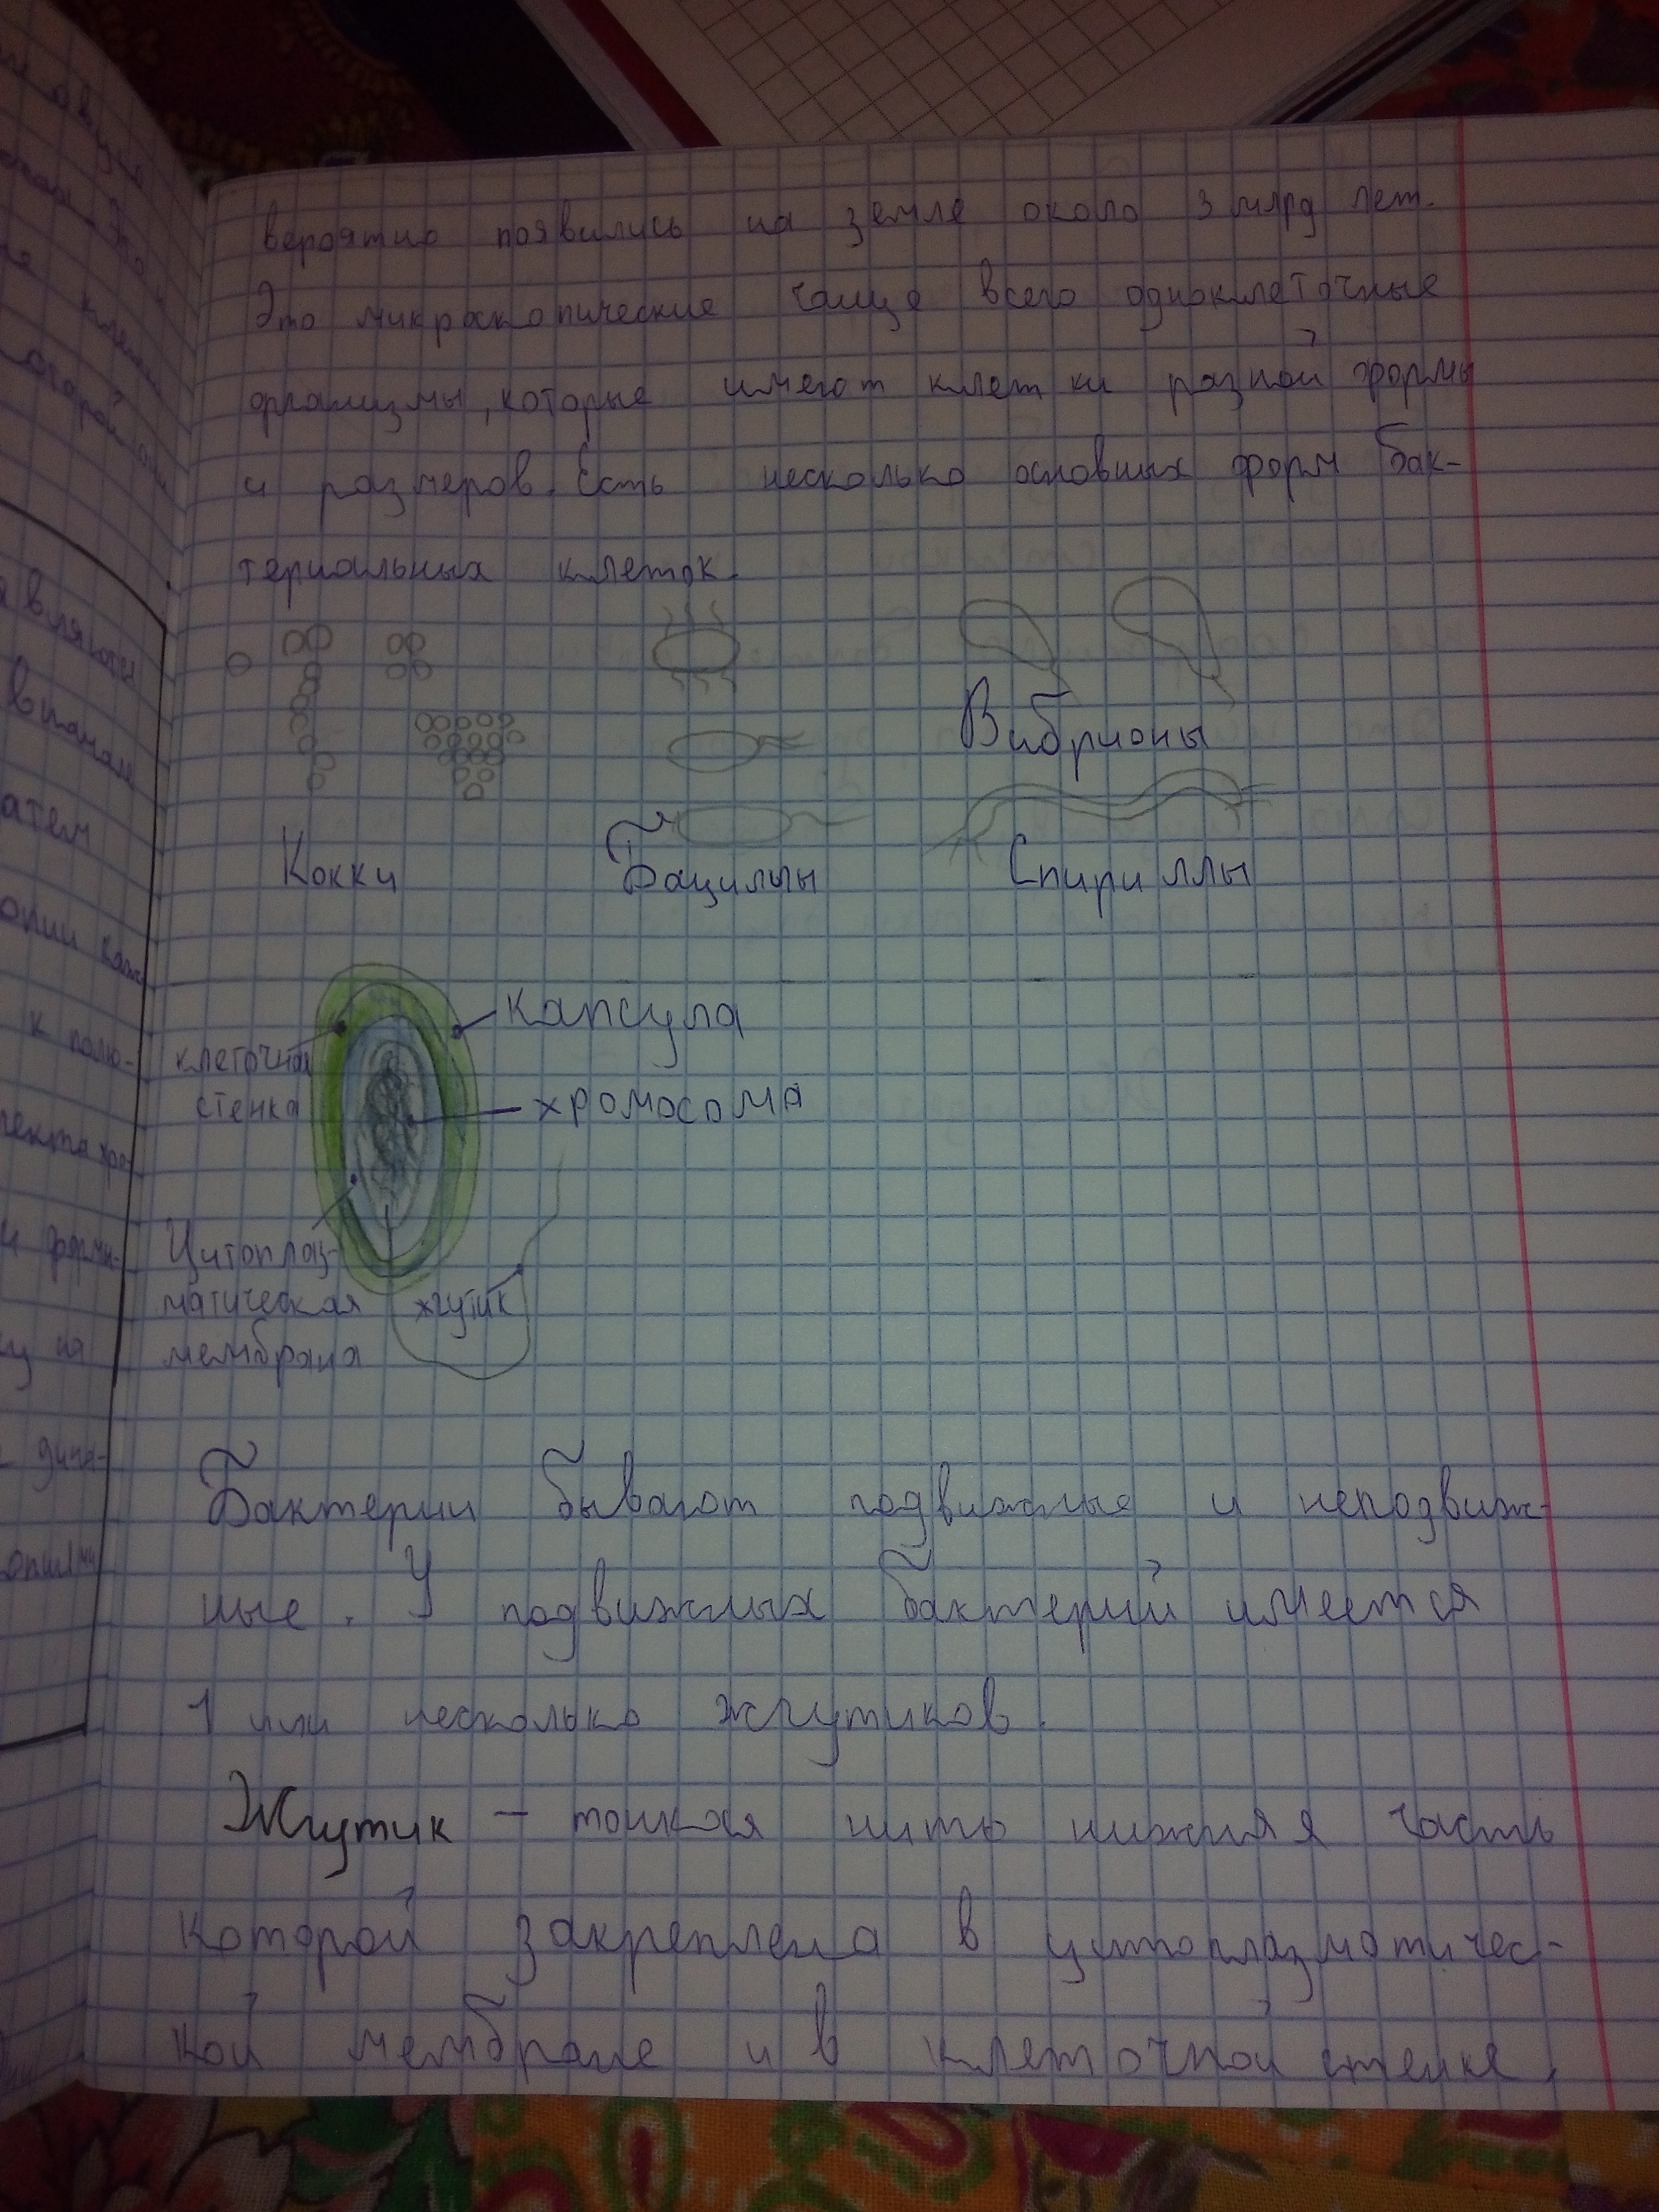 вероятно появились на земле около 3 млрд лет.
Это микроскопические чаще всего одноклеточные
организмы, которые имеют клетки разной формы
и размеров. Есть несколько основных форм бак-
териальных клеток.
Вибрионы
Кокки
Бациллы
Спириллы
капсула
клеточная
стенка
хромосома
Цитоплаз-
матическая
мембрана
жгутик
Бактерии бывают подвижные и неподвиж-
ные. У подвижных бактерий имеется
1 или несколько жгутиков.
Жгутик – тонкая нить нижняя часть
которой закреплена в цитоплазматичес-
кой мембране и в клеточной стенке,